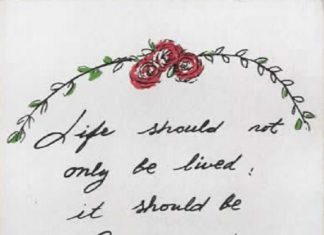 Life should not
only be lived;
it should be